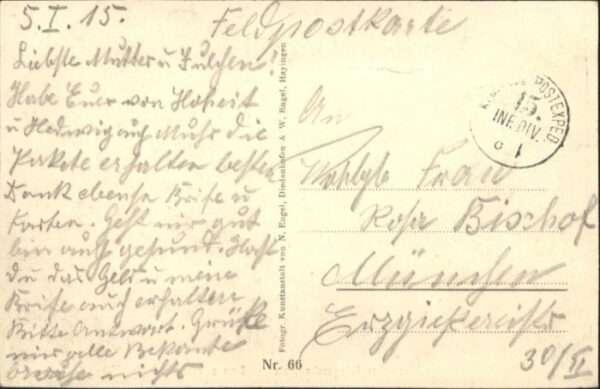 5. I. 15.
Feldpostkarte
Liebste Mutter u Julchen!
Habe Euer von
u Hedwig auch die
Pakete erhalten besten
Dank ebenso Briefe u
Karten. Geht mir gut
bin auch gesund. Hast
du das Geld u meine
Briefe auch erhalten
Bitte Antwort. Grüße
mir alle Bekante
nichts
Fotogr. Kunstanstalt von N. Engel, Diedenhofen & W. Engel, Hayingen
Nr. 66
POSTEXPED
15.
INF. DIV.
An
Frau
Rosa Bischof
München
Erzgießereistr
30/II